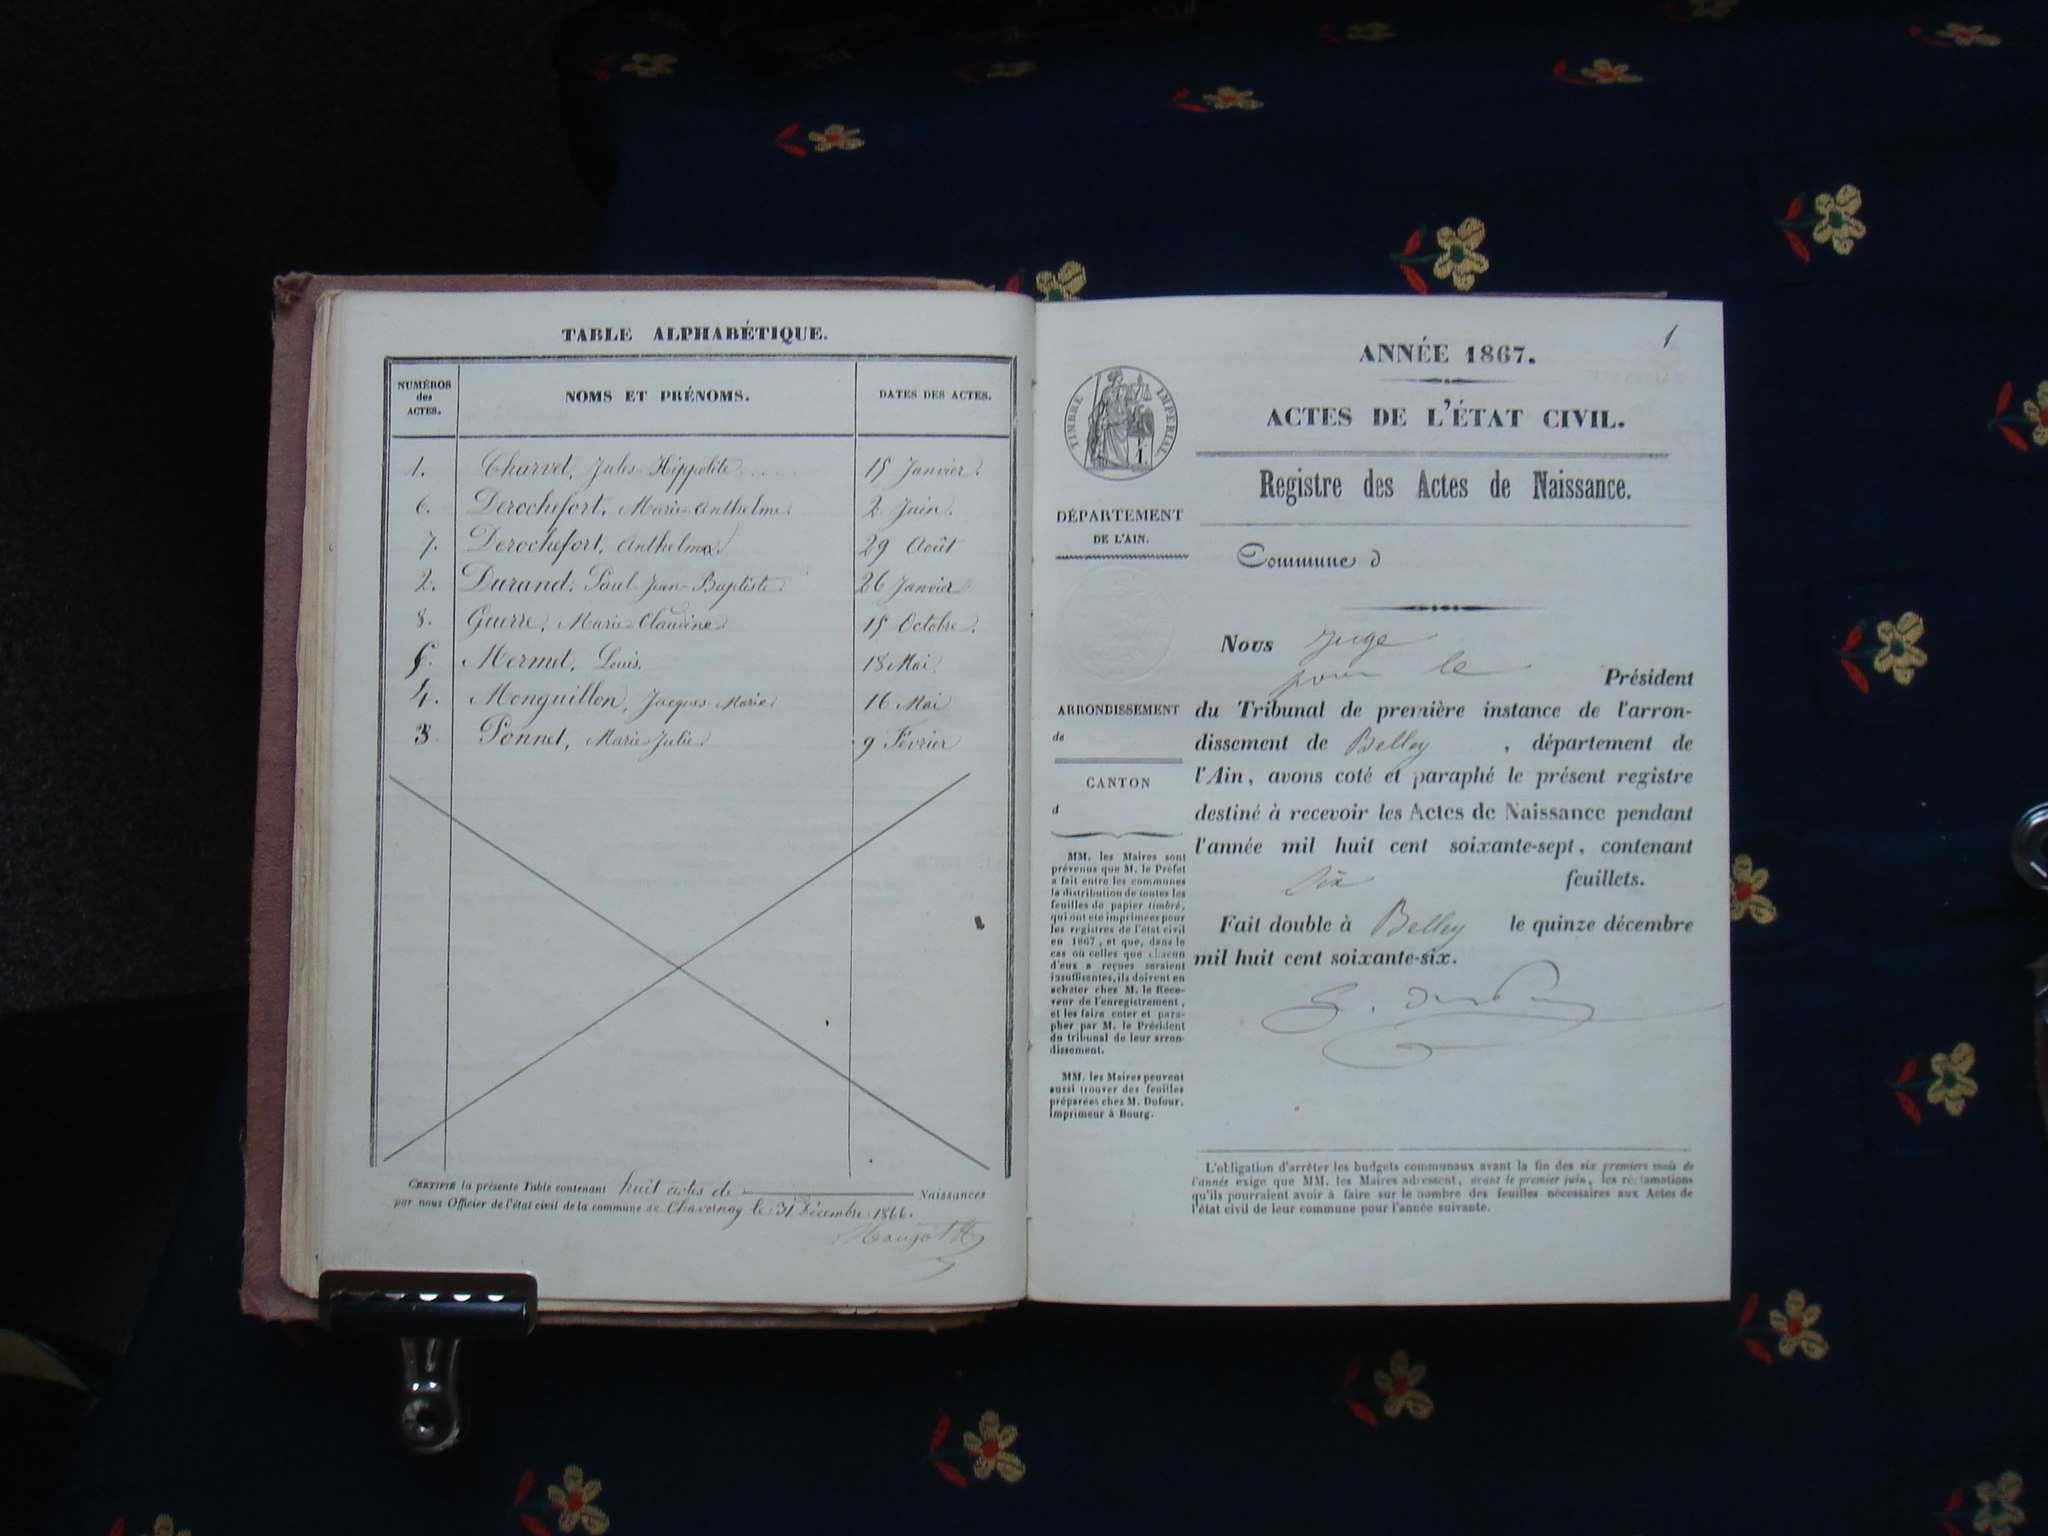 TABLE ALPHABÉTIQUE.
NUMÉROS des ACTES. NOMS ET PRÉNOMS. DATES DES ACTES.
1. Charvet, Jules-Hippolite..... 15 Janvier.
6. Derochefort, Marie-Anthelme. 2 Juin.
7. Derochefort, Anthelma. 29 Août
2. Durand, Paul-Jean-Baptiste. 26 Janvier
8. Guerre, Marie-Claudine. 15 Octobre.
5. Mermet, Louis. 18 Mai.
4. Monguillon, Jacques-Marie. 16 Mai
3. Ponnet, Marie-Julie. 9 Février
CERTIFIÉ la présente Table contenant huit actes de Naissances
par nous Officier de l'état civil de la commune de Chavornay le 31 Décembre 1866.
1
ANNÉE 1867.
ACTES DE L'ÉTAT CIVIL.
Registre des Actes de Naissance.
TIMBRE IMPERIAL
DÉPARTEMENT
DE L'AIN.
ARRONDISSEMENT
de
CANTON
d
MM. les Maires sont
prévenus que M. le Préfet
a fait entre les communes
la distribution de toutes les
feuilles de papier timbré,
qui ont été imprimées pour
les registres de l'état civil
en 1867, et que, dans le
cas où celles que chacun
d'eux a reçues seraient
insuffisantes, ils doivent en
acheter chez M. le Rece-
veur de l'enregistrement,
et les faire coter et para-
pher par M. le Président
du tribunal de leur arron-
dissement.
MM. les Maires peuvent
aussi trouver des feuilles
préparées chez M. Dufour,
imprimeur à Bourg.
Commune d
Nous juge
pour le Président
du Tribunal de première instance de l'arron-
dissement de Belley, département de
l'Ain, avons coté et paraphé le présent registre
destiné à recevoir les Actes de Naissance pendant
l'année mil huit cent soixante-sept, contenant
six feuillets.
Fait double à Belley le quinze décembre
mil huit cent soixante-six.
L'obligation d'arrêter les budgets communaux avant la fin des six premiers mois de
l'année exige que MM. les Maires adressent, avant le premier juin, les réclamations
qu'ils pourraient avoir à faire sur le nombre des feuilles nécessaires aux Actes de
l'état civil de leur commune pour l'année suivante.